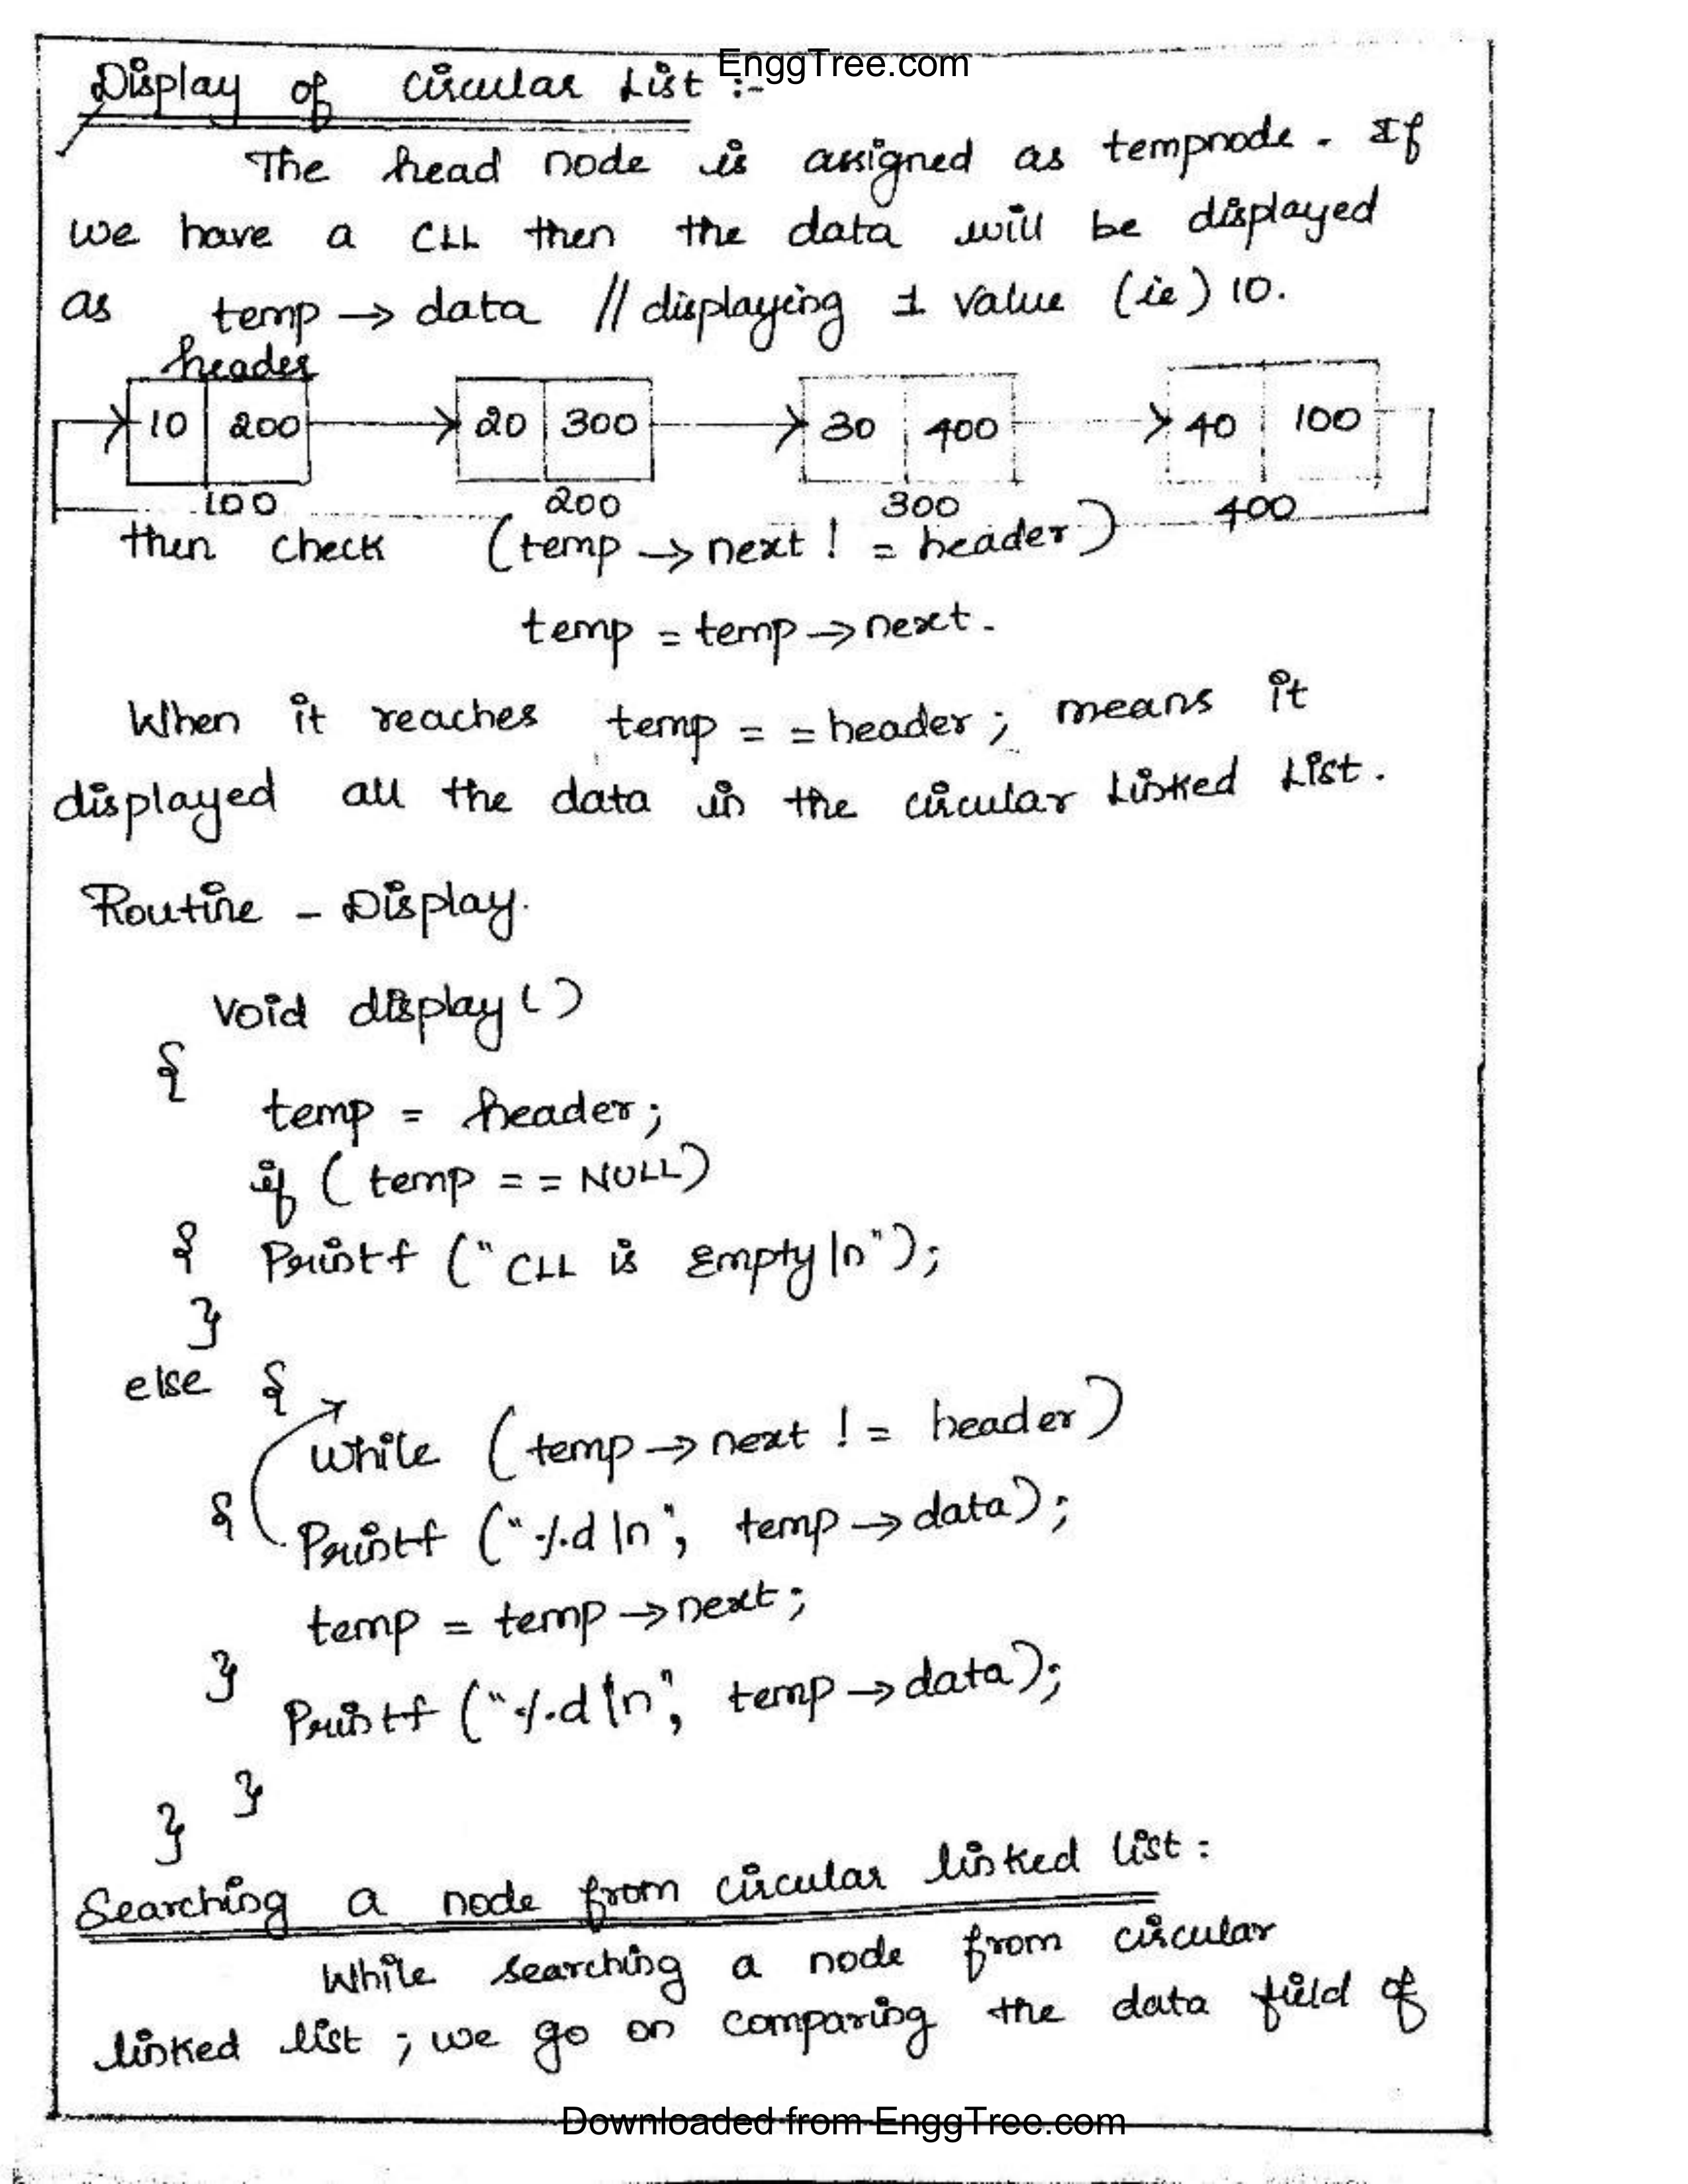 EnggTree.com
Display of Circular List :-
The head node is assigned as tempnode. If
we have a CLL then the data will be displayed
as temp → data // displaying 1 value (ie) 10.
header
10 200 20 300 30 400 40 100
100 200 300 400
then check (temp → next ! = header)
temp = temp → next.
When it reaches temp = = header ; means it
displayed all the data in the circular Linked List.
Routine - Display.
Void display ()
{
temp = header;
if ( temp = = NULL)
{ Printf (" CLL is Empty \n");
}
else {
while (temp → next ! = header)
{ Printf ("%d \n", temp → data);
temp = temp → next;
}
Printf ("%d \n", temp → data);
}
}
Searching a node from circular linked list :
While searching a node from circular
linked list ; we go on comparing the data field of
Downloaded from EnggTree.com